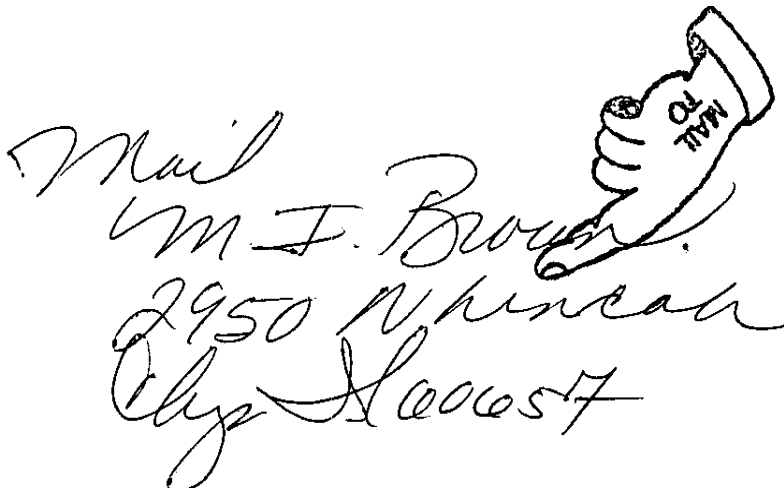 MAIL
TO
Mail
M I. Brown.
2950 N
Chgo Il 60657